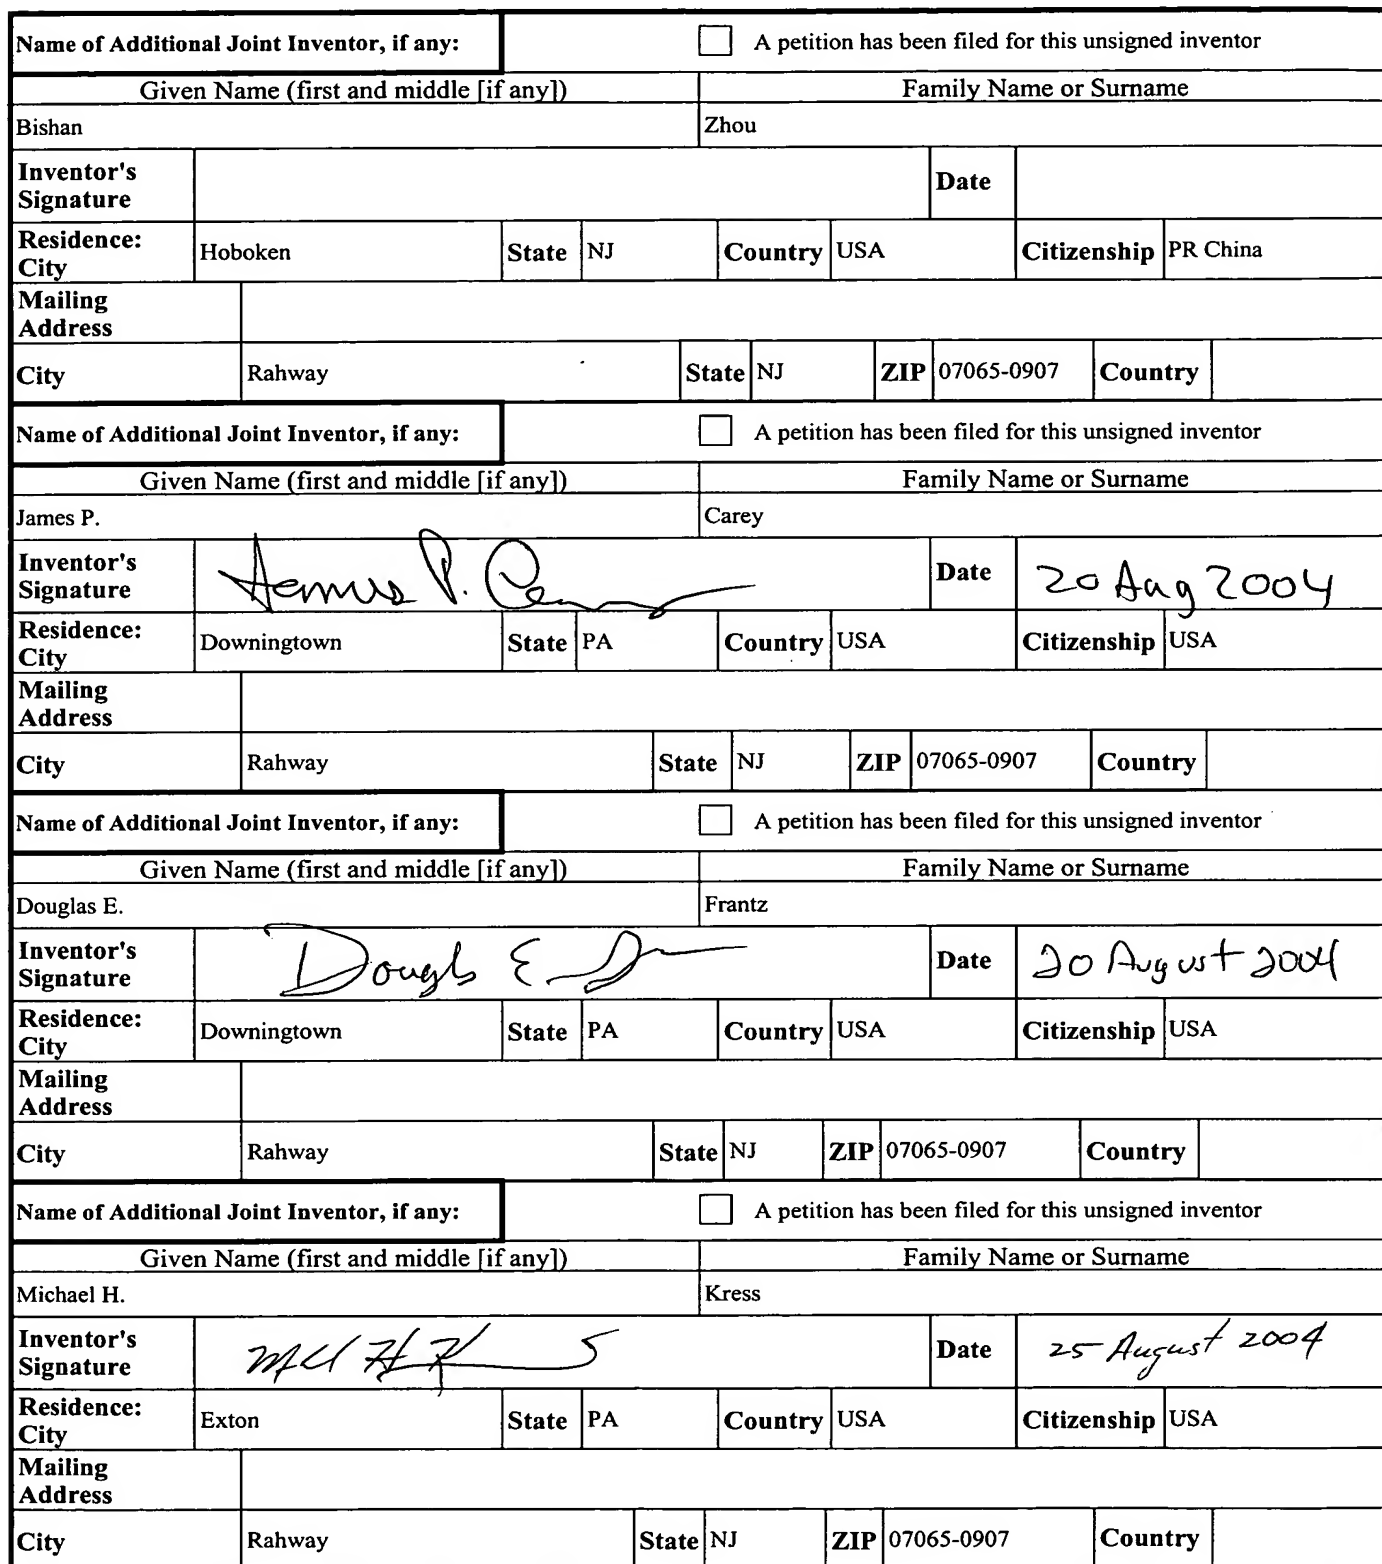 Name of Additional Joint Inventor, if any: A petition has been filed for this unsigned inventor
Given Name (first and middle [if any]) Family Name or Surname
Bishan Zhou
Inventor's Signature Date
Residence: City Hoboken State NJ Country USA Citizenship PR China
Mailing Address
City Rahway State NJ ZIP 07065-0907 Country
Name of Additional Joint Inventor, if any: A petition has been filed for this unsigned inventor
Given Name (first and middle [if any]) Family Name or Surname
James P. Carey
Inventor's Signature James P. Carey Date 20 Aug 2004
Residence: City Downingtown State PA Country USA Citizenship USA
Mailing Address
City Rahway State NJ ZIP 07065-0907 Country
Name of Additional Joint Inventor, if any: A petition has been filed for this unsigned inventor
Given Name (first and middle [if any]) Family Name or Surname
Douglas E. Frantz
Inventor's Signature Douglas E. Date 20 August 2004
Residence: City Downingtown State PA Country USA Citizenship USA
Mailing Address
City Rahway State NJ ZIP 07065-0907 Country
Name of Additional Joint Inventor, if any: A petition has been filed for this unsigned inventor
Given Name (first and middle [if any]) Family Name or Surname
Michael H. Kress
Inventor's Signature Date 25 August 2004
Residence: City Exton State PA Country USA Citizenship USA
Mailing Address
City Rahway State NJ ZIP 07065-0907 Country